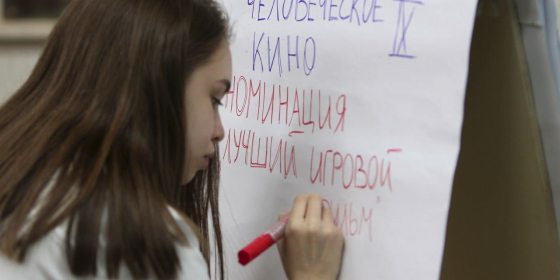 ЧЕЛОВЕЧЕСКОЕ IX
КИНО
НОМИНАЦИЯ
ЛУЧШИЙ ИГРОВОЙ